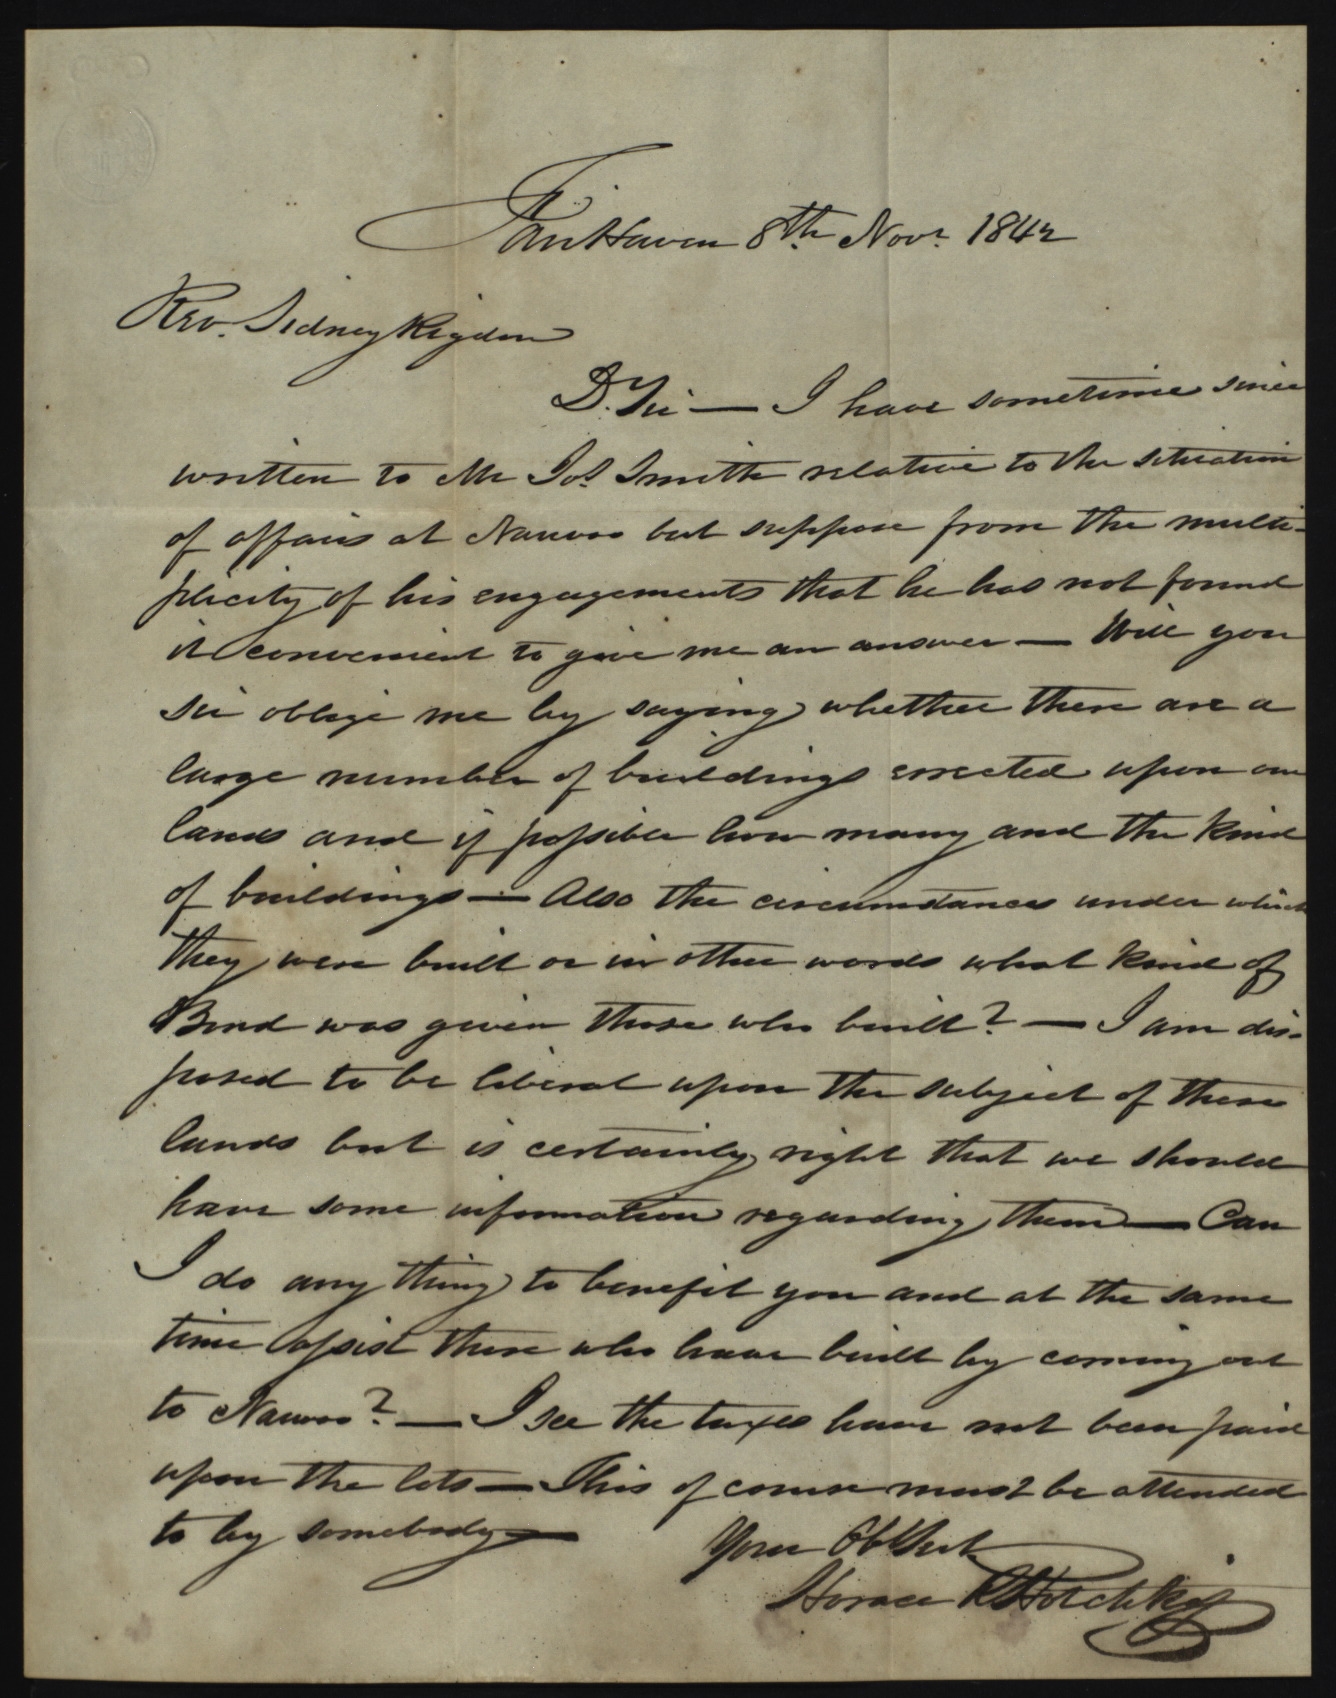 Fair Haven 8th. Novr. 1842
Rev. Sidney Rigdon
D. Sir — I have sometime since
written to Mr Jos. Smith relative to the situation
of affairs at Nauvoo but suppose from the multi-
plicity of his engagements that he has not found
it convenient to give me an answer — Will you
sir oblige me by saying whether there are a
large number of buildings errected upon our
lands and if possible how many and the kind
of buildings — Also the circumstances under which
they were built or in other words what kind of
Bond was given those who built? — I am dis-
posed to be liberal upon the subject of these
lands but is certainly right that we should
have some information regarding them — Can
I do any thing to benefit you and at the same
time assist those who have built by coming out
to Nauvoo? — I see the taxes have not been paid
upon the lots — This of course must be attended
to by somebody —
Your Obt Svt.
Horace R Hotchkiss